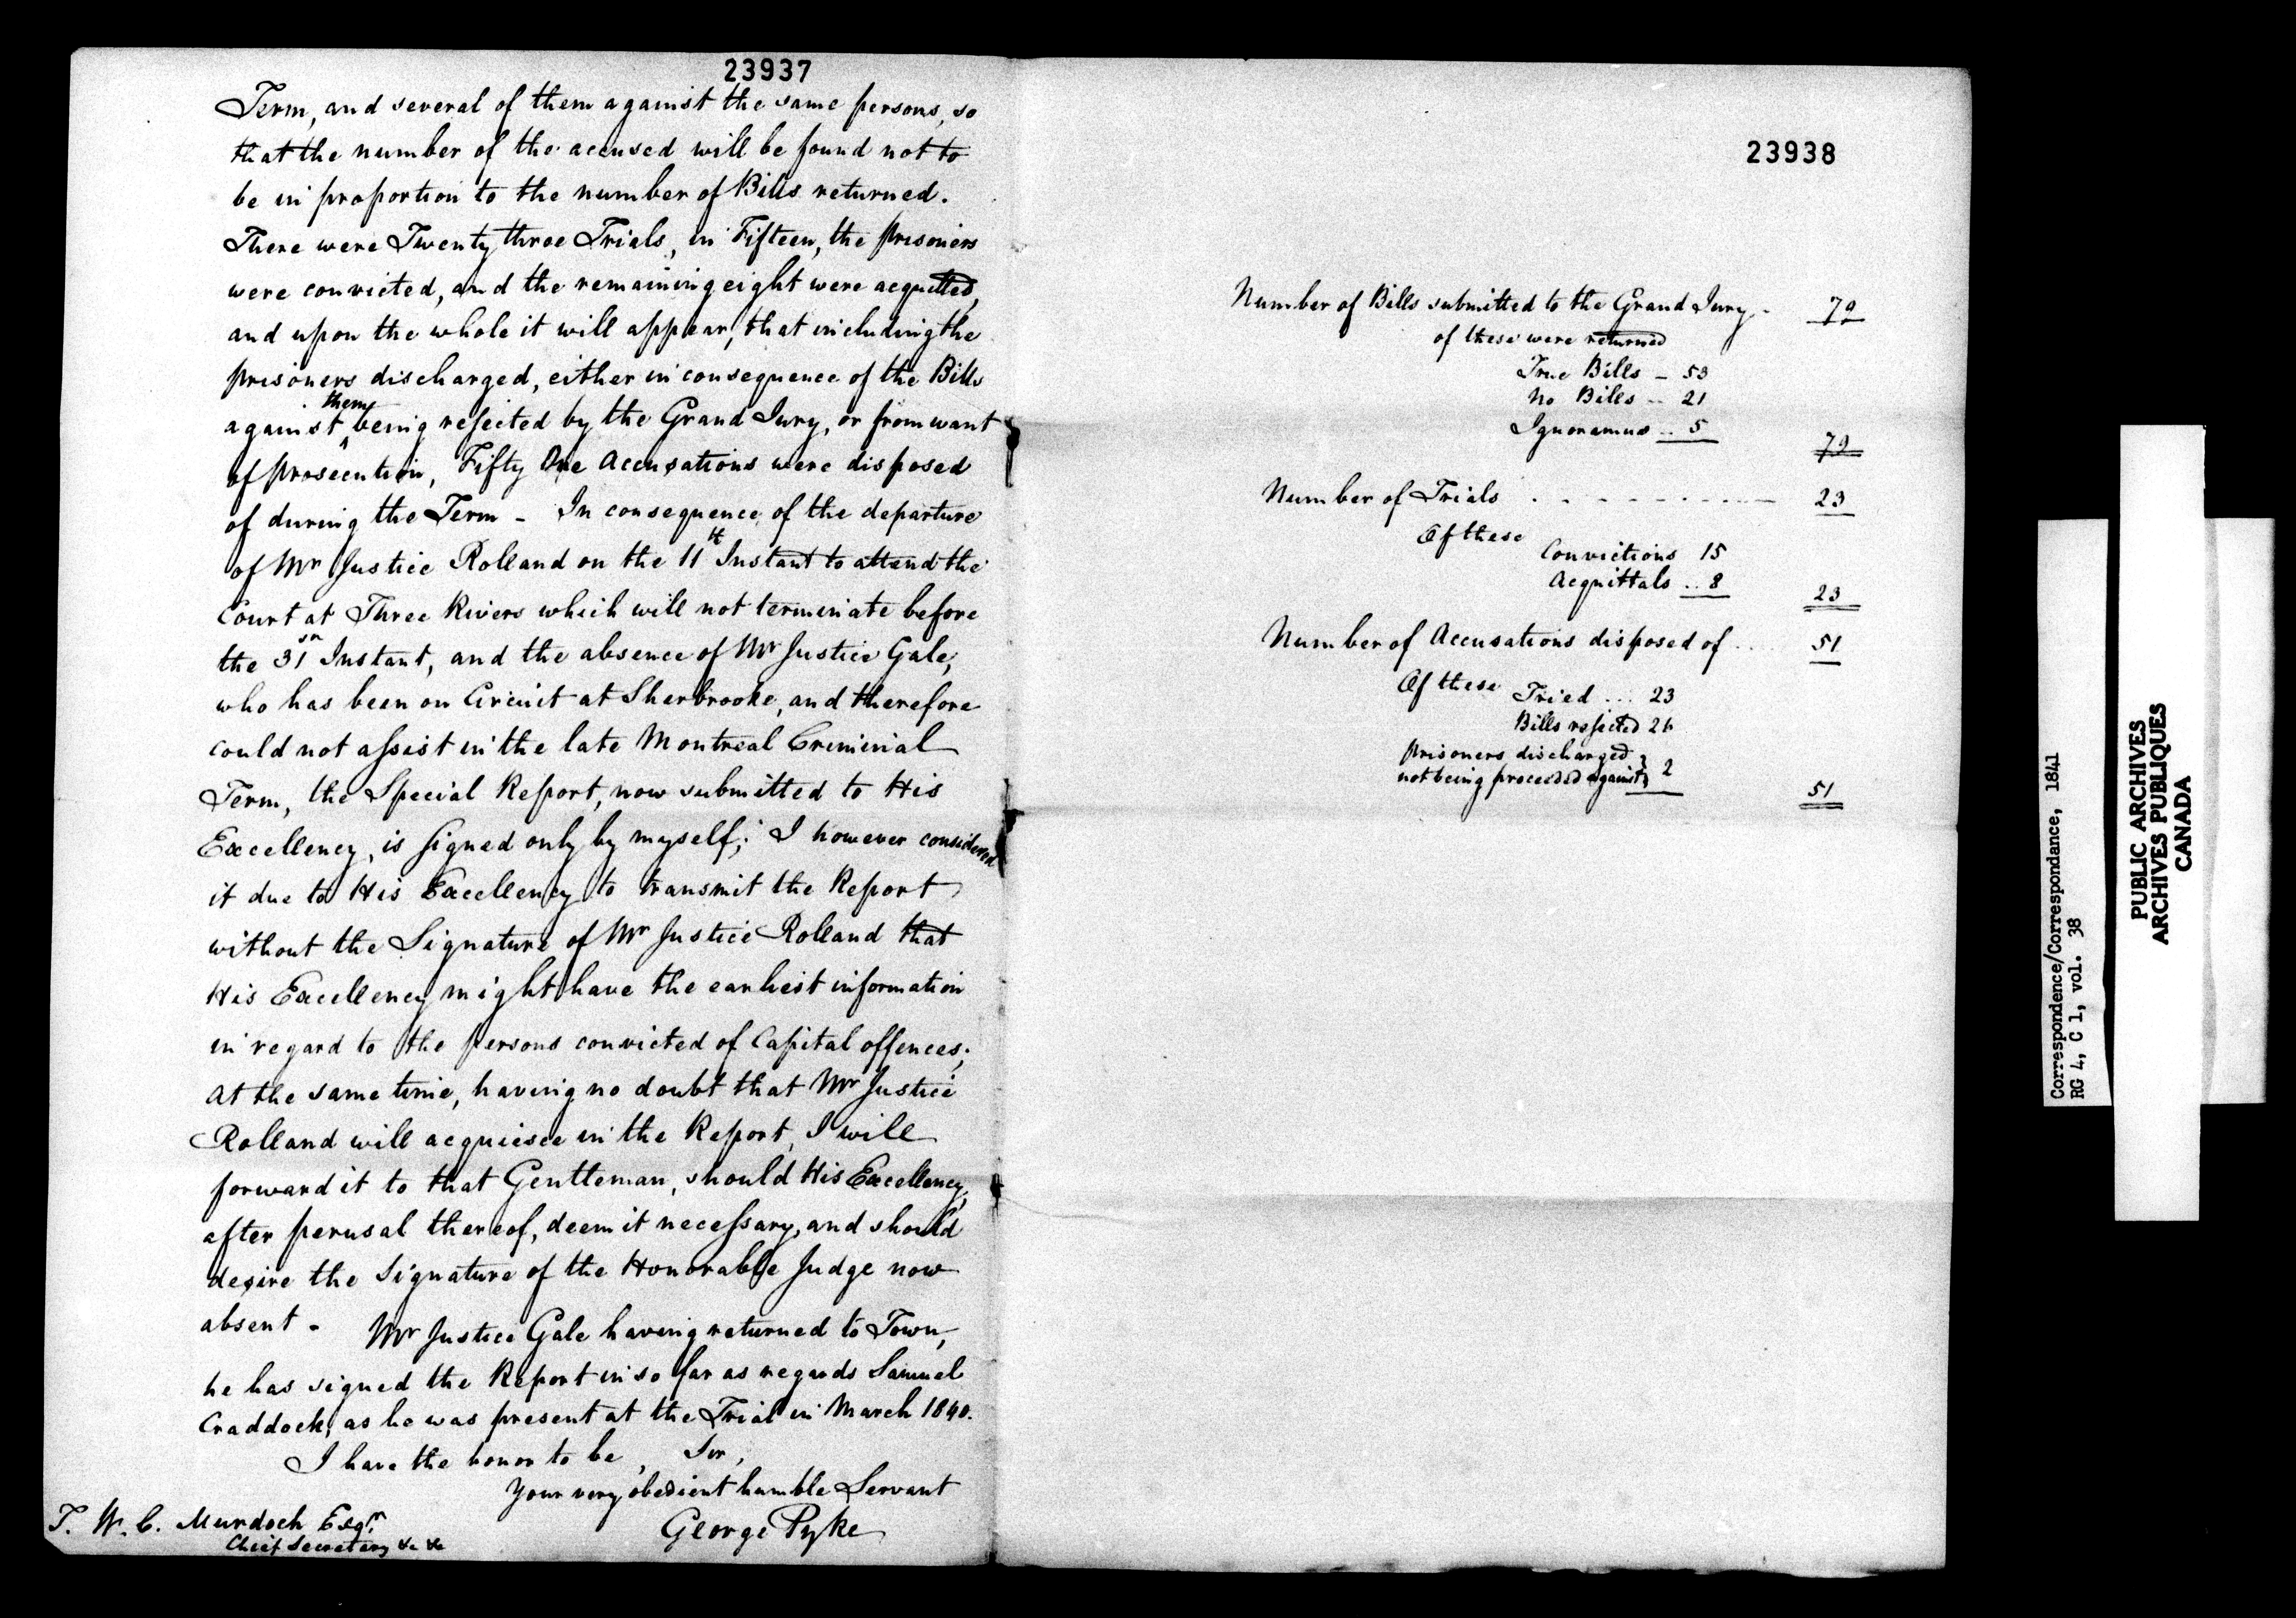 23937
Term, and several of them against the same persons, so
that the number of the accused will be found not to
be in proportion to the number of Bills returned.
There were Twenty three Trials, in Fifteen, the prisoners
were convicted, and the remaining eight were acquitted,
and upon the whole it will appear, that including the
prisoners discharged, either in consequence of the Bills
against them being rejected by the Grand Jury, or from want
of prosecution, Fifty One Accusations were disposed
of during the Term - In consequence of the departure
of Mr Justice Rolland on the 11th Instant to attend the
Court at Three Rivers which will not terminate before
the 31st Instant, and the absence of Mr Justice Gale,
who has been on Circuit at Sherbrooke, and therefore
could not assist in the late Montreal Criminal
Term, the Special Report, now submitted to His
Excellency, is signed only by myself; I however considered
it due to His Excellency to transmit the Report
without the Signature of Mr Justice Rolland that
His Excellency might have the earliest information
in regard to the persons convicted of Capital offences;
At the same time, having no doubt that Mr Justice
Rolland will acquiesce in the Report, I will
forward it to that Gentleman, should His Excellency,
after perusal thereof, deem it necessary, and should
desire the Signature of the Honorable Judge now
absent - Mr Justice Gale having returned to Town,
he has signed the Report in so far as regards Samuel
Craddock, as he was present at the Trial in March 1840.
I have the honor to be, Sir,
Your very obedient humble Servant
George Pyke
T. W. C. Murdoch Esqr.
Chief Secretary &c &c
23938
Number of Bills submitted to the Grand Jury - 79
of these were returned
True Bills - 53
No Bills -- 21
Ignoramus .. 5
79
Number of Trials . - - - - - - - - - 23
Of these
Convictions 15
Acquittals .. 8
23
Number of Accusations disposed of .... 51
Of these Tried ... 23
Bills rejected 26
Prisoners discharged }
not being proceeded against } 2
51
Correspondence/Correspondance, 1841
RG 4, C 1, vol. 38
PUBLIC ARCHIVES
ARCHIVES PUBLIQUES
CANADA